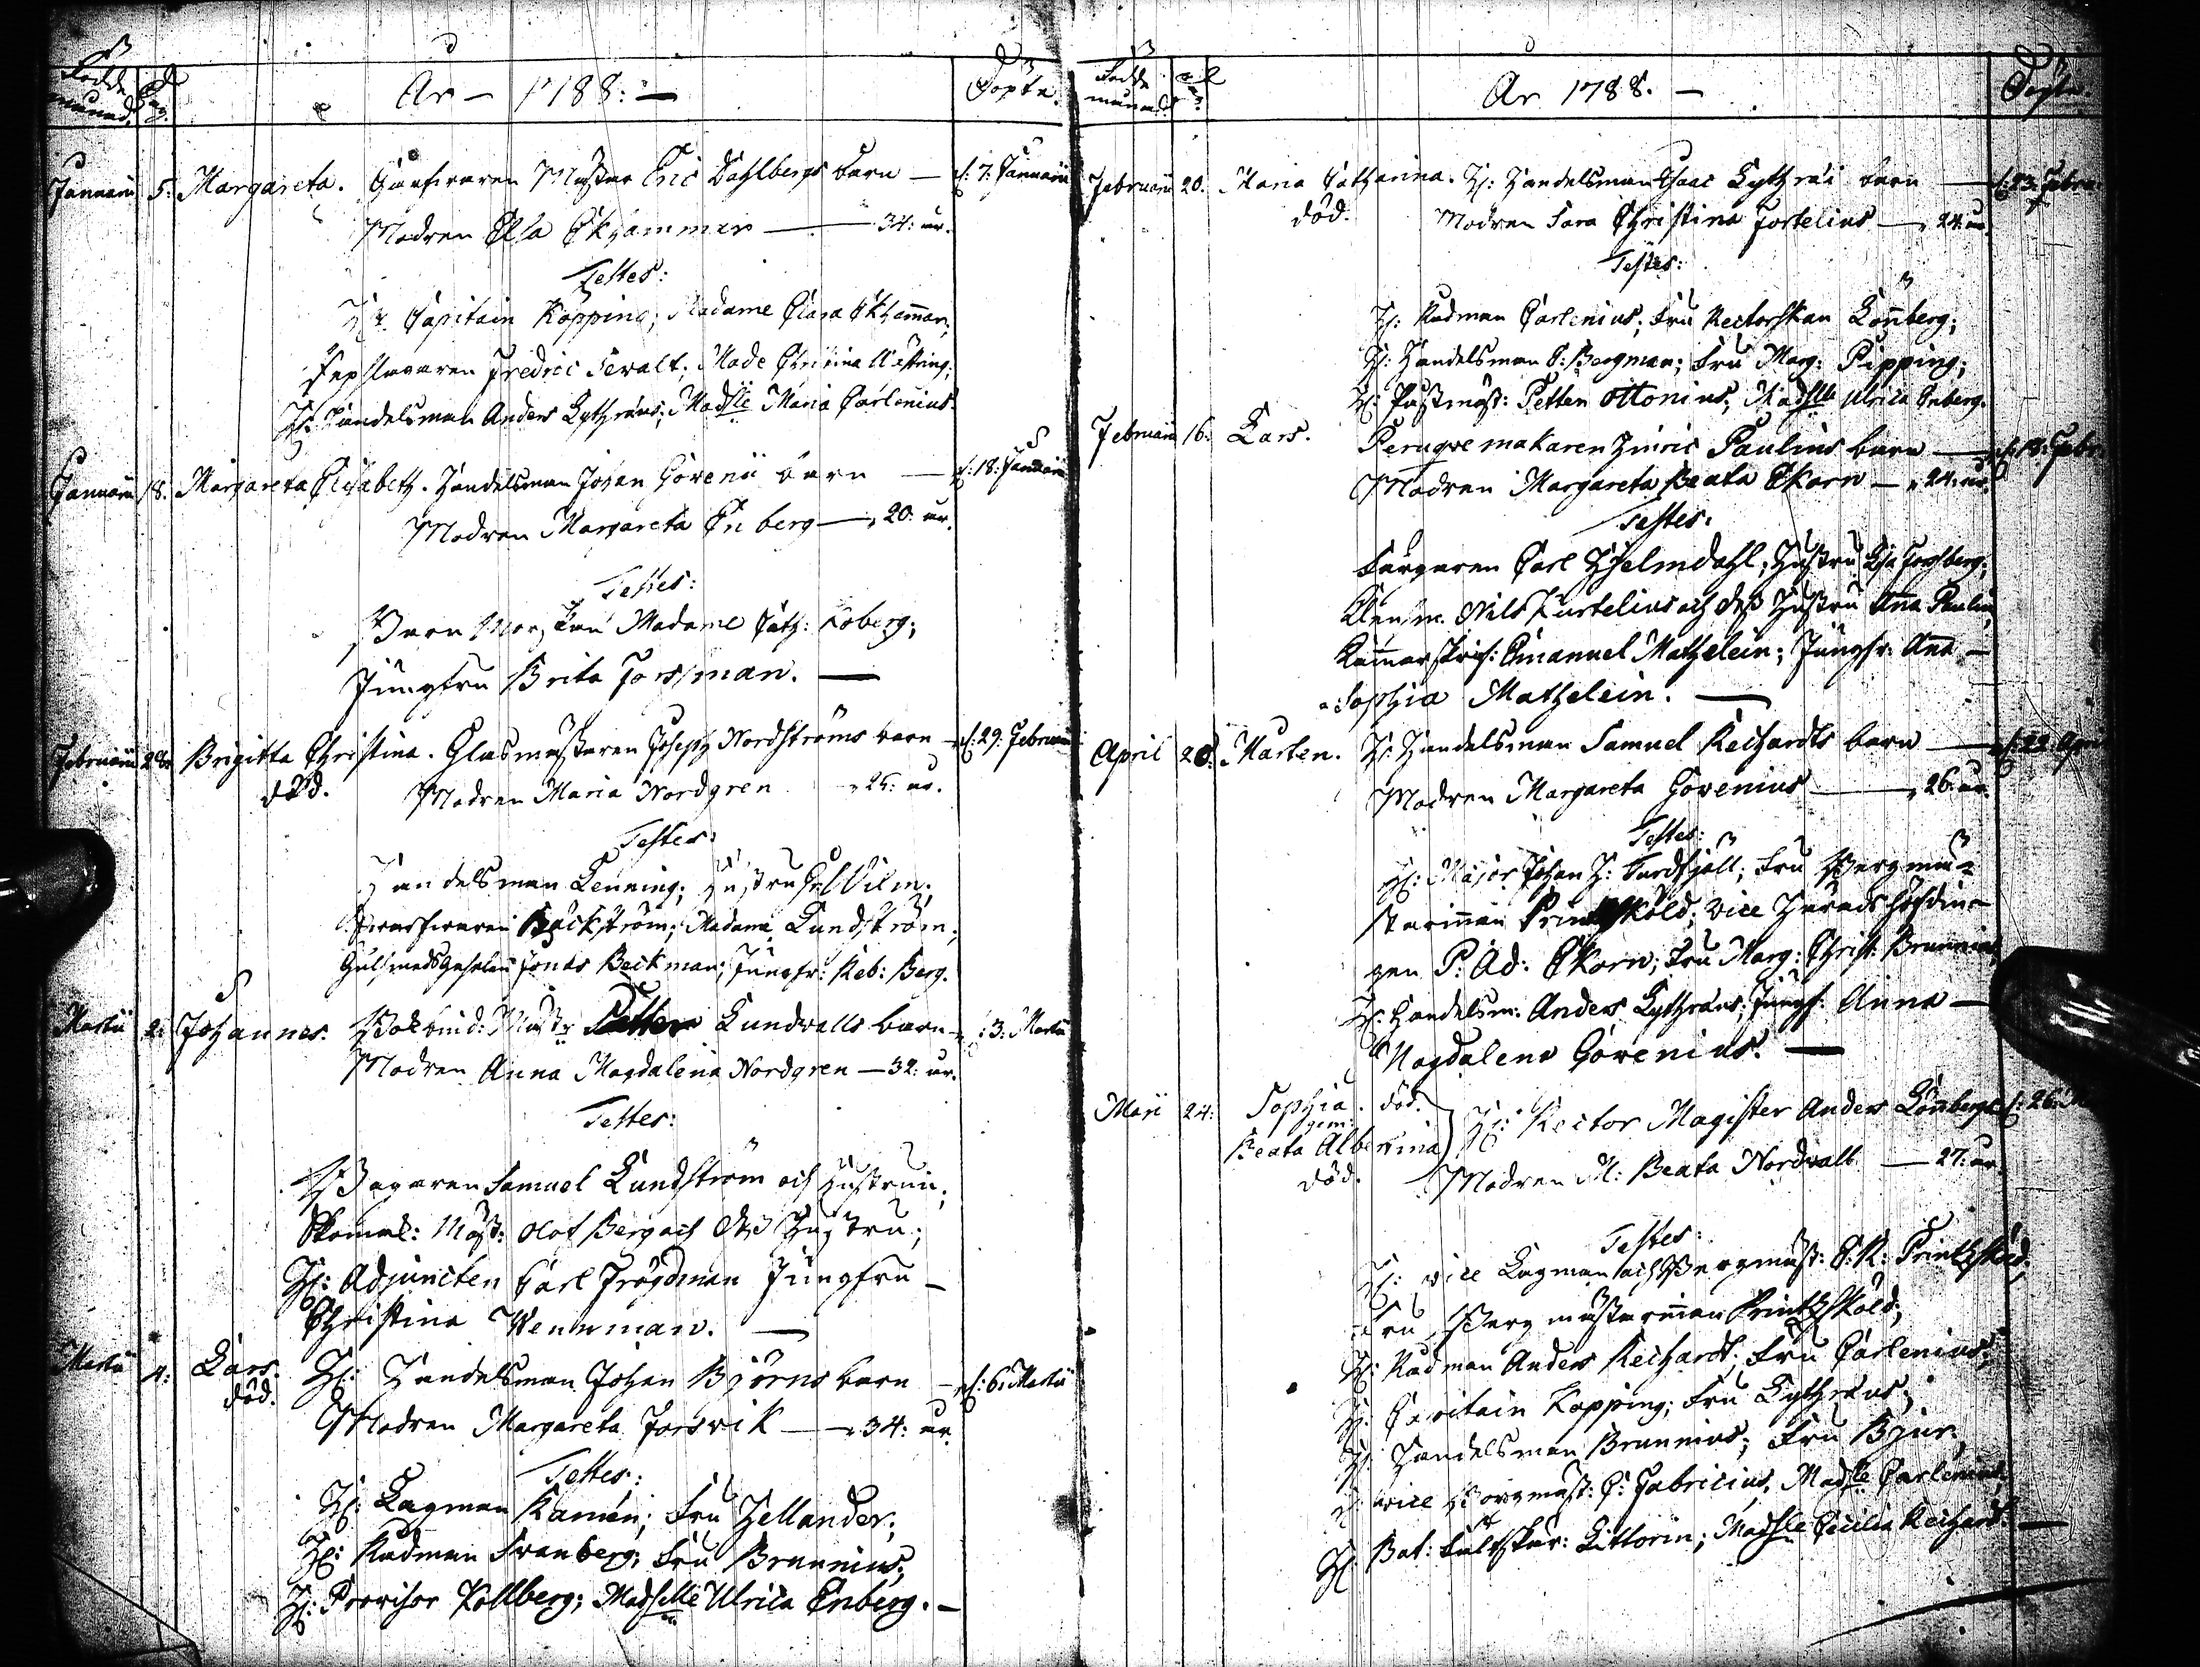 Födde
månad.
Dag.
År – 1788: –
Döpte.
Januarii 5. Margareta. Garfvaren Mästar Eric Dahlbergs barn – d: 7. Januarii
Modren Elsa Ekhammar – 34: år.
Testes:
Hr. Capitain Köpping; Madame Clara Ekhamar;
Repslagaren Fredric Sevalt; Made Christina Westring;
H: Handelsman Anders Lythræus; Madlle Maria Carlenius.
Januarii 18. Margareta Elisabeth. Handelsman Johan Govenii barn – d: 18: Januarii
Modren Margareta Enberg – 20. år.
Testes:
Barn Mor, Fru Madame Cath: Koberg;
Jungfru Brita Forssman. –
Februarii 28. Brigitta Christina. Glasmästaren Joseph Nordströms barn – d: 29. Februarii
död. Modren Maria Nordgren – 25: år.
Testes:
Handelsman Lenning; Hustru
Bäckström; Madame Lundström;
Gulsmedsgesälen Jonas Beckman; Jungfr: Reb: Berg.
Martii 2. Johannes. Bokbind: Mästr Petter Lundvalls barn – d: 3. Martii
Modren Anna Magdalena Nordgren – 32: år.
Testes:
Bagaren Samuel Lundström och Hustrun;
Skomak: Mäst: Olof Berg och dess Hustru;
H: Adjuncten Carl Frögdman Jungfru –
Christina Wennman. –
Martii 4: Lars. H: Handelsman Johan Björns barn – d: 6. Martii
död. Modren Margareta Forsvik – 34: år.
Testes:
H: Lagman Ramén; Fru Hellander;
H: Rådman Svanberg; Fru Brunnius;
H: Provisor Kollberg; Madselle Ulrica Enberg. –
Födde
månad
År 1788. –
Döpte.
Februarii 20. Maria Catharina. H: Handelsman Isaac Lythræi barn – d: 23. Febru
död. Modren Sara Christina Fortelius – 24. år
Testes:
H: Rådman Carlenius; Fru Rectorskan Lönberg;
H: Handelsman C: Bergman; Fru Marg: Pipping;
H: Postmäst: Petter Ottonius; Madselle Ulrica Enberg.
Februarii 16. Lars. Peruqve makaren Hinric Paulins barn – d: 18. Febr
Modren Margareta Beata Ekorn – 24. år.
Testes:
Färgaren Carl Hjelmdahl; Hustru Lisa Forsberg;
Länsm. Nils Kurtelius och dess Hustru Ana Paulin;
Kamarskrif: Emanuel Mathelein; Jungfr. Ana –
Sophia Mathelein. –
April 20. Marten. H: Handelsman Samuel Reichardts barn – d: 22. Apri
Modren Margareta Govenius – 26. år.
Testes:
H: Major Johan H: Furdfjäll; Fru Bergmä-
starinnan Printzsköld; Vice Häradshöfdin-
gen P: Ad: Ekorn; Fru Marg: Christ: Brunnius
H. Handelsm: Anders Lythræus; Jungf: Anna –
Magdalena Govenius. –
Maii 24: Sophia. död.
gem:
Beata Albertina
död.
H: Rector Magister Anders Lönbergs d: 26. M
Modren M: Beata Nordvall – 27: år.
Testes:
H: vice Lagman och Bergmäst: C: R: Printzsköld;
Fru Bergmästarinnan Printzsköld;
H: Rådman Anders Reichardt; Fru Carlenius;
H: Capitain Köpping; Fru Lythræus;
H: Handelsman Brunnius; Fru Bjur;
H: vice Borgmäst: C: Fabricius; Madlle Carlenius;
H: Bat: Fältskär: Littorin; Madselle Cecilia Reichard. –